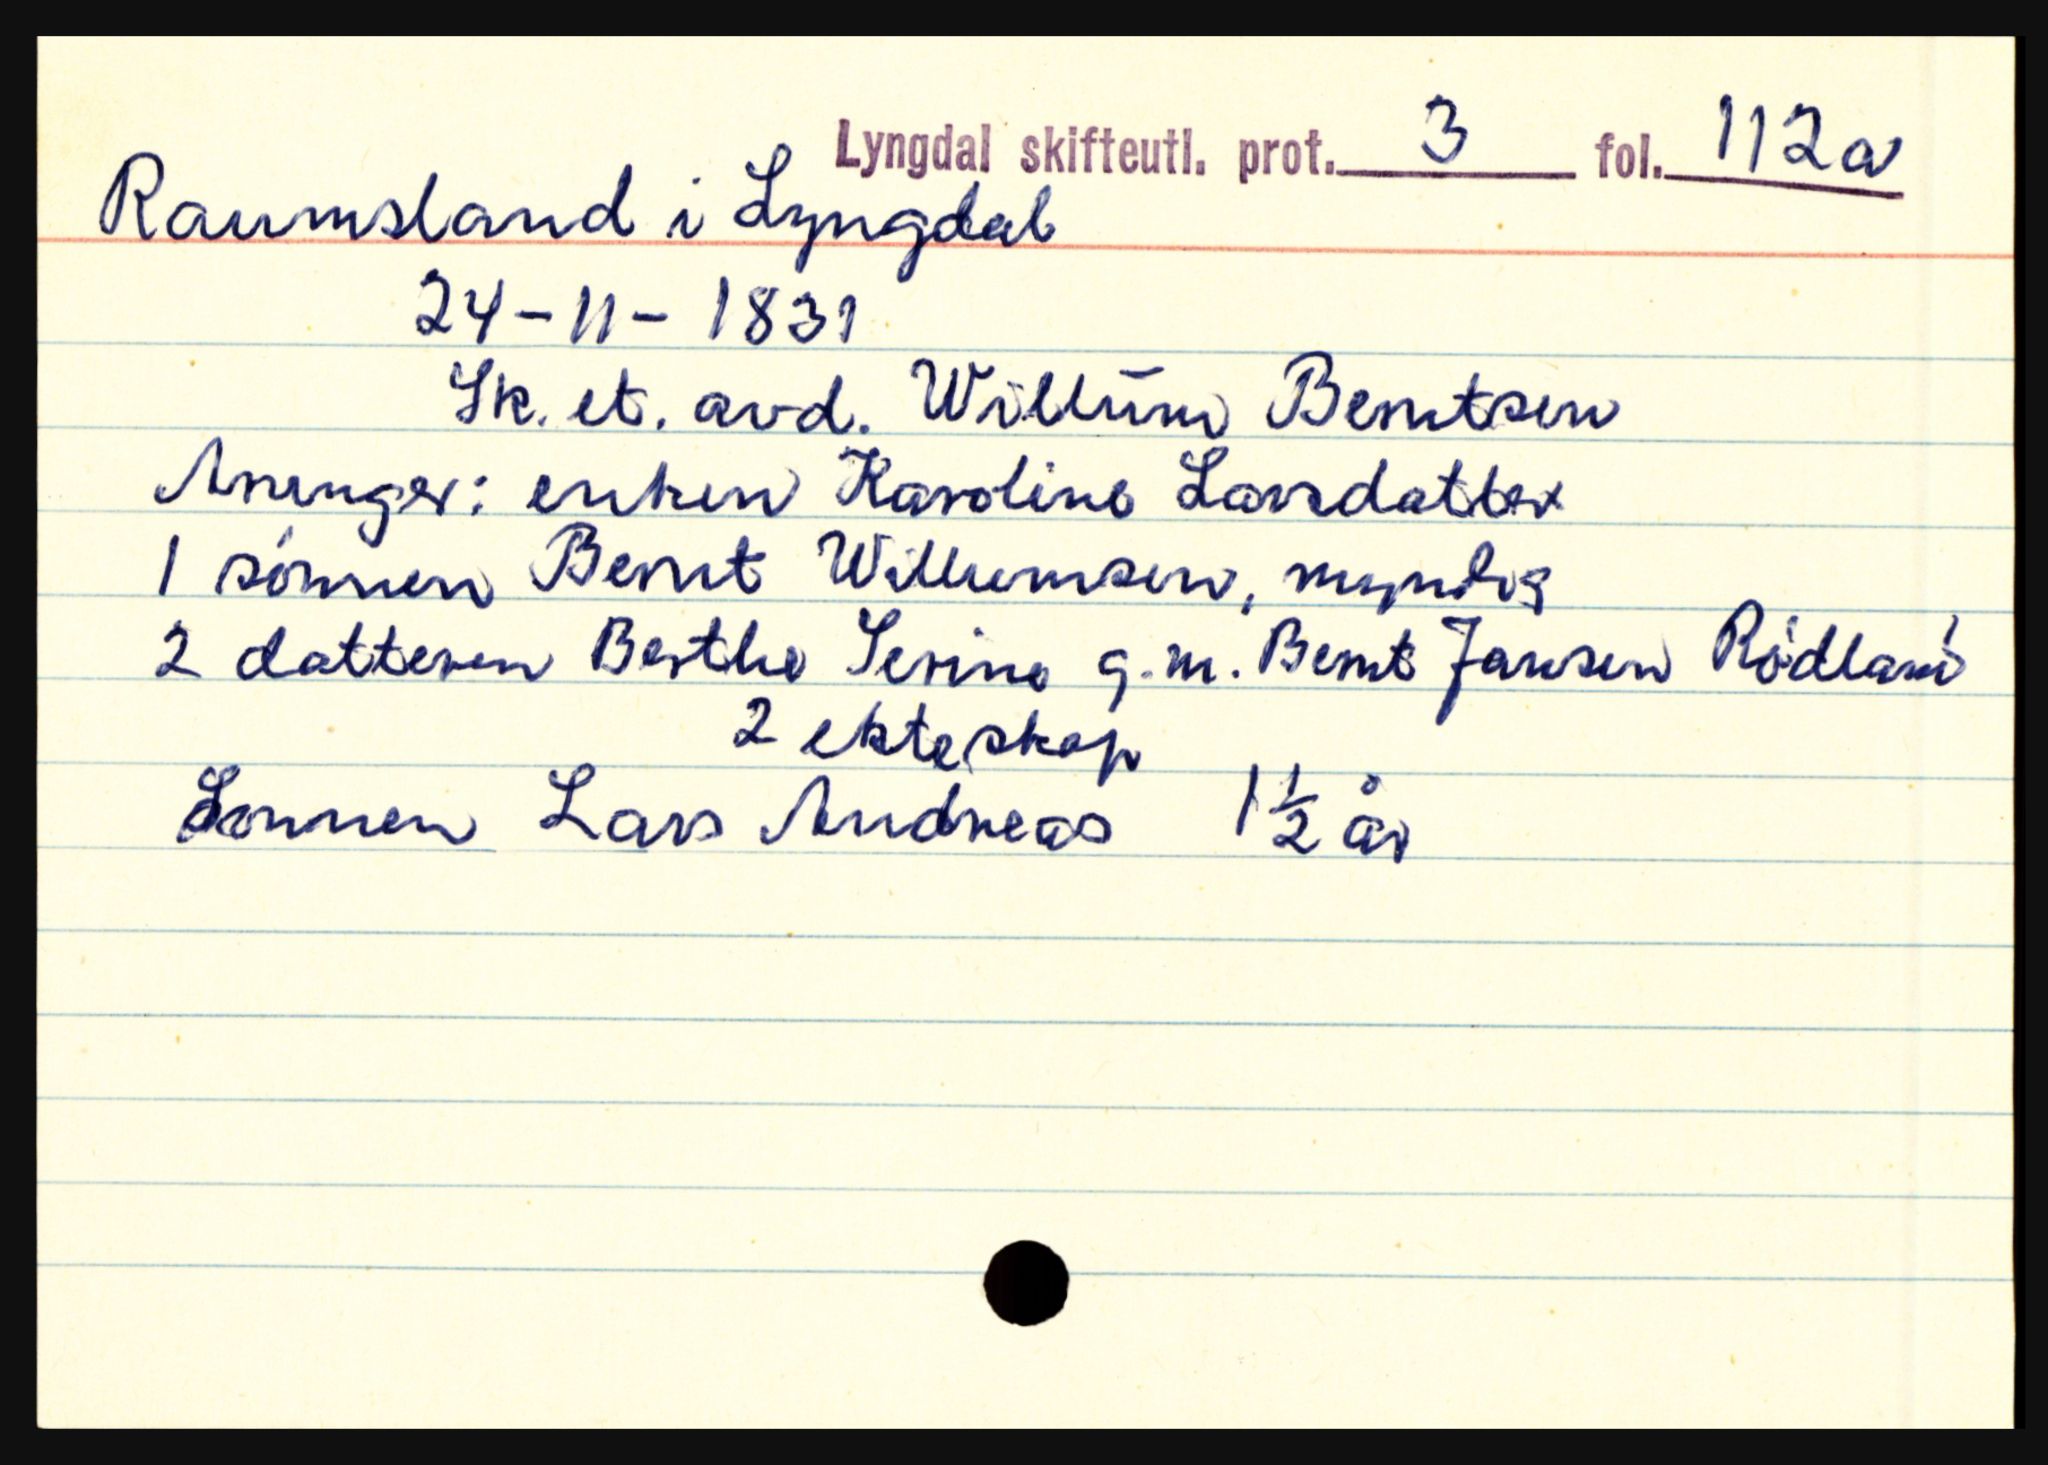 Lyngdal skifteutl. prot. 3 fol. 112a
Raumsland i Lyngdal
24-11-1831
Sk. et. avd. Willūm Berntsen
Arvinger: enken Karoline Larsdatter
1 sønnen Bernt Willumsen, myndig
2 datteren Berthe Serine g.m. Bernt Jansen Rødland
2 ekteskap
Sønnen Lars Andreas 1½ år